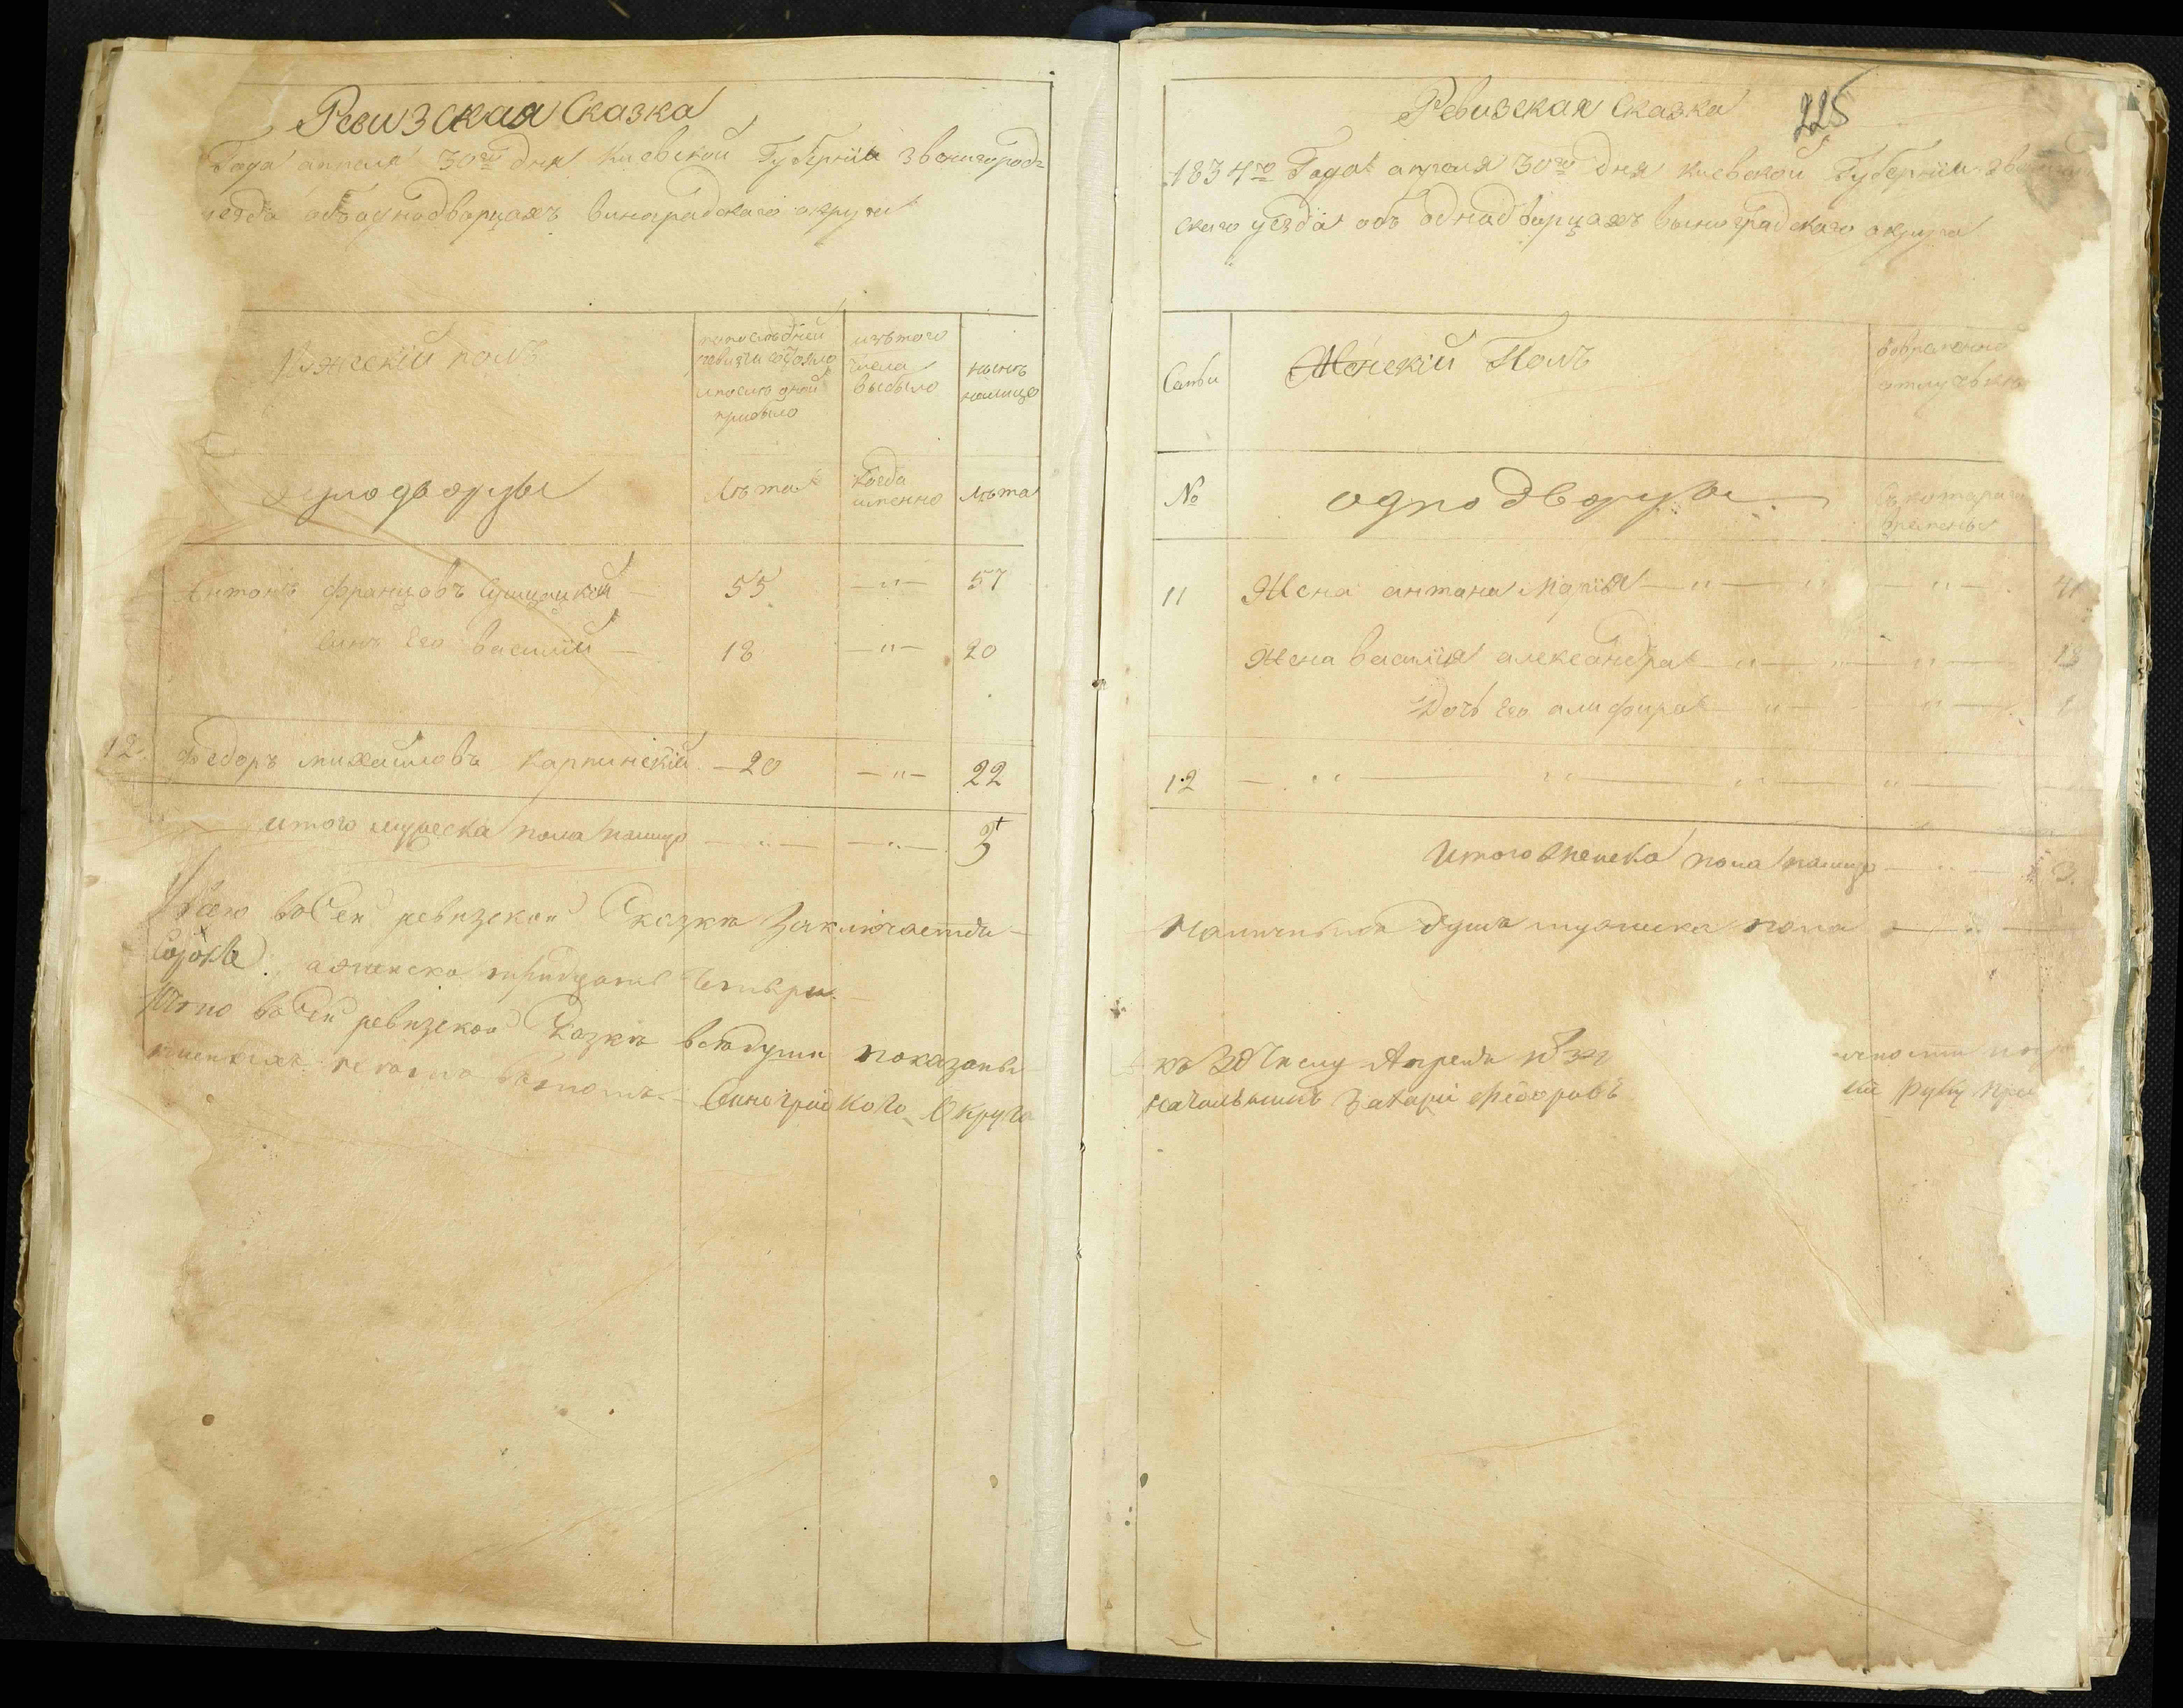 Ревизская Сказка
Года апреля 30го дня Киевской Губернии звенигород=
уезда объ аднодворцахъ винаградскаго округа
Мужеский полъ
по последней ревизии состояло и после оной прибыло
изъ того числа выбыло
ныне налицо
однодворцы
Лета
Когда именно
лета
Антонъ францовъ 55 —"— 57
Сынъ Его василий — 18 —"— 20
12. Федоръ михайловъ карпинский — 20 —"— 22
итого мужеска пола налицо —"— —"— 3
Всего в сей ревизской Сказке Заключается
адженска тридцать Четыри
Что в сей ревизской Сказке все души показаны
Виноградского Округа
Ревизская Сказка
225
1834го Года апреля 30го дня Киевской Губернии
скаго уезда объ однадворцахъ виноградскаго округа
Семьи
Женский Полъ
во временно отлучьке
№
однодворцы
Съ котораго времены
11 Жена антона Мария —"— " —"— 41
Жена василия александра —"— "— "— 18
Дочь Его —"— "— 1
12 —"— "— "— "—
Итого женска пола налицо — 3.
Наличныхъ душъ мужеска пола —
къ 30 Числу Апреля
Начальникъ Захарий Федоровъ
руку